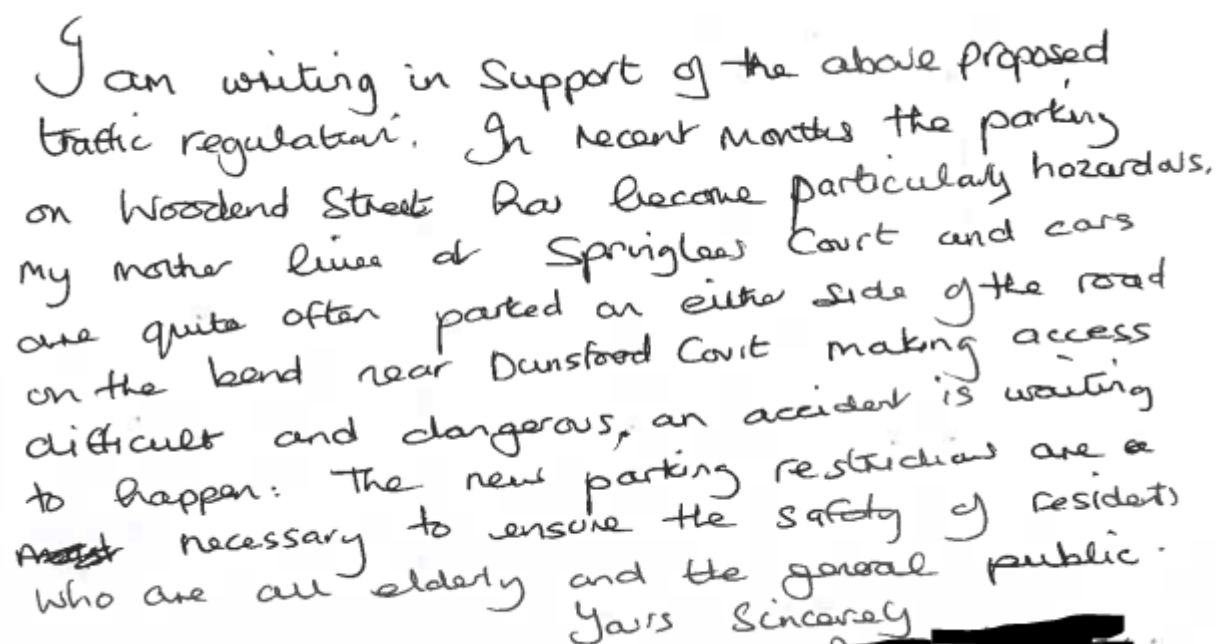 I am writing in support of the above proposed
traffic regulation. In recent months the parking
on Woodend Street has become particularly hazardous.
My mother lives at Springlees Court and cars
are quite often parked on either side of the road
on the bend near Dunsford Court making access
difficult and dangerous, an accident is waiting
to happen. The new parking restrictions are a
necessary to ensure the safety of residents
who are all elderly and the general public.
Yours Sincerely